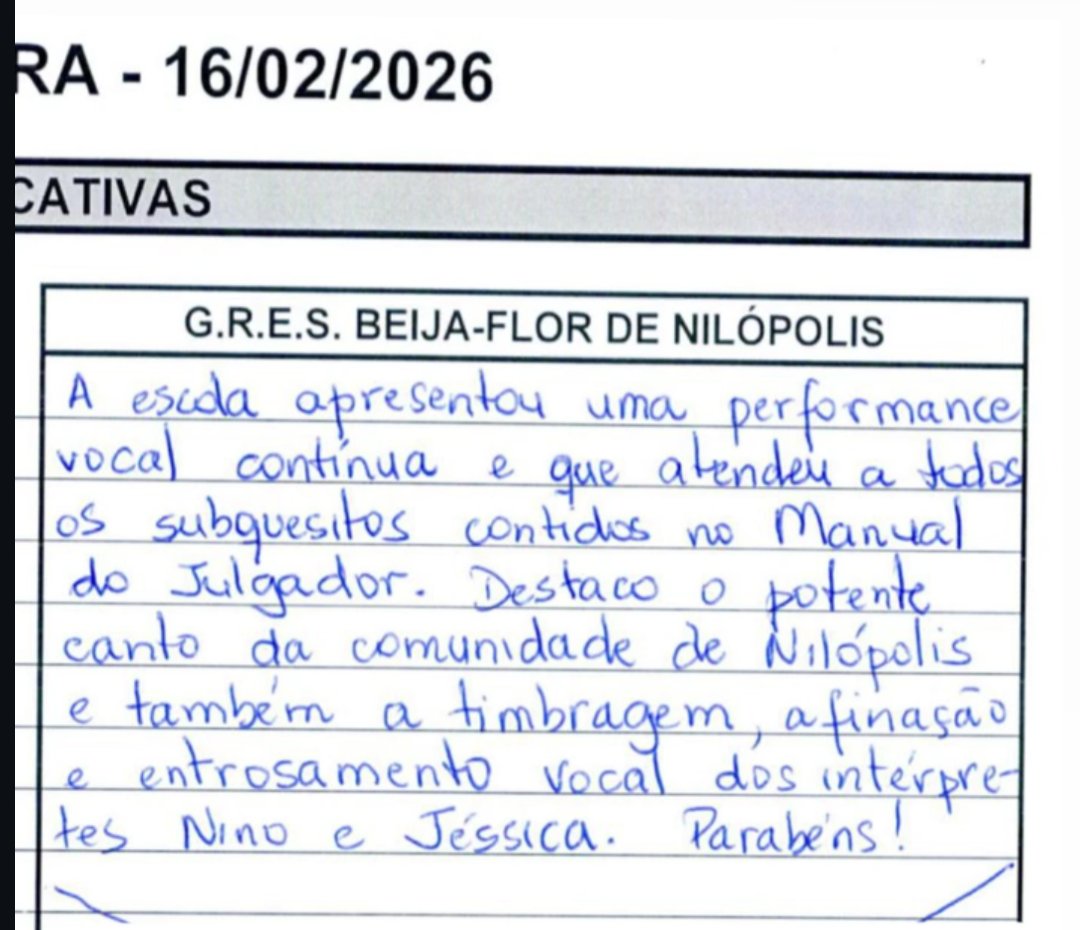 RA - 16/02/2026
CATIVAS
G.R.E.S. BEIJA-FLOR DE NILÓPOLIS
A escola apresentou uma performance
vocal contínua e que atendeu a todos
os subquesitos contidos no Manual
do Julgador. Destaco o potente
canto da comunidade de Nilópolis
e também a timbragem, afinação
e entrosamento vocal dos intérpre-
tes Nino e Jéssica. Parabéns!